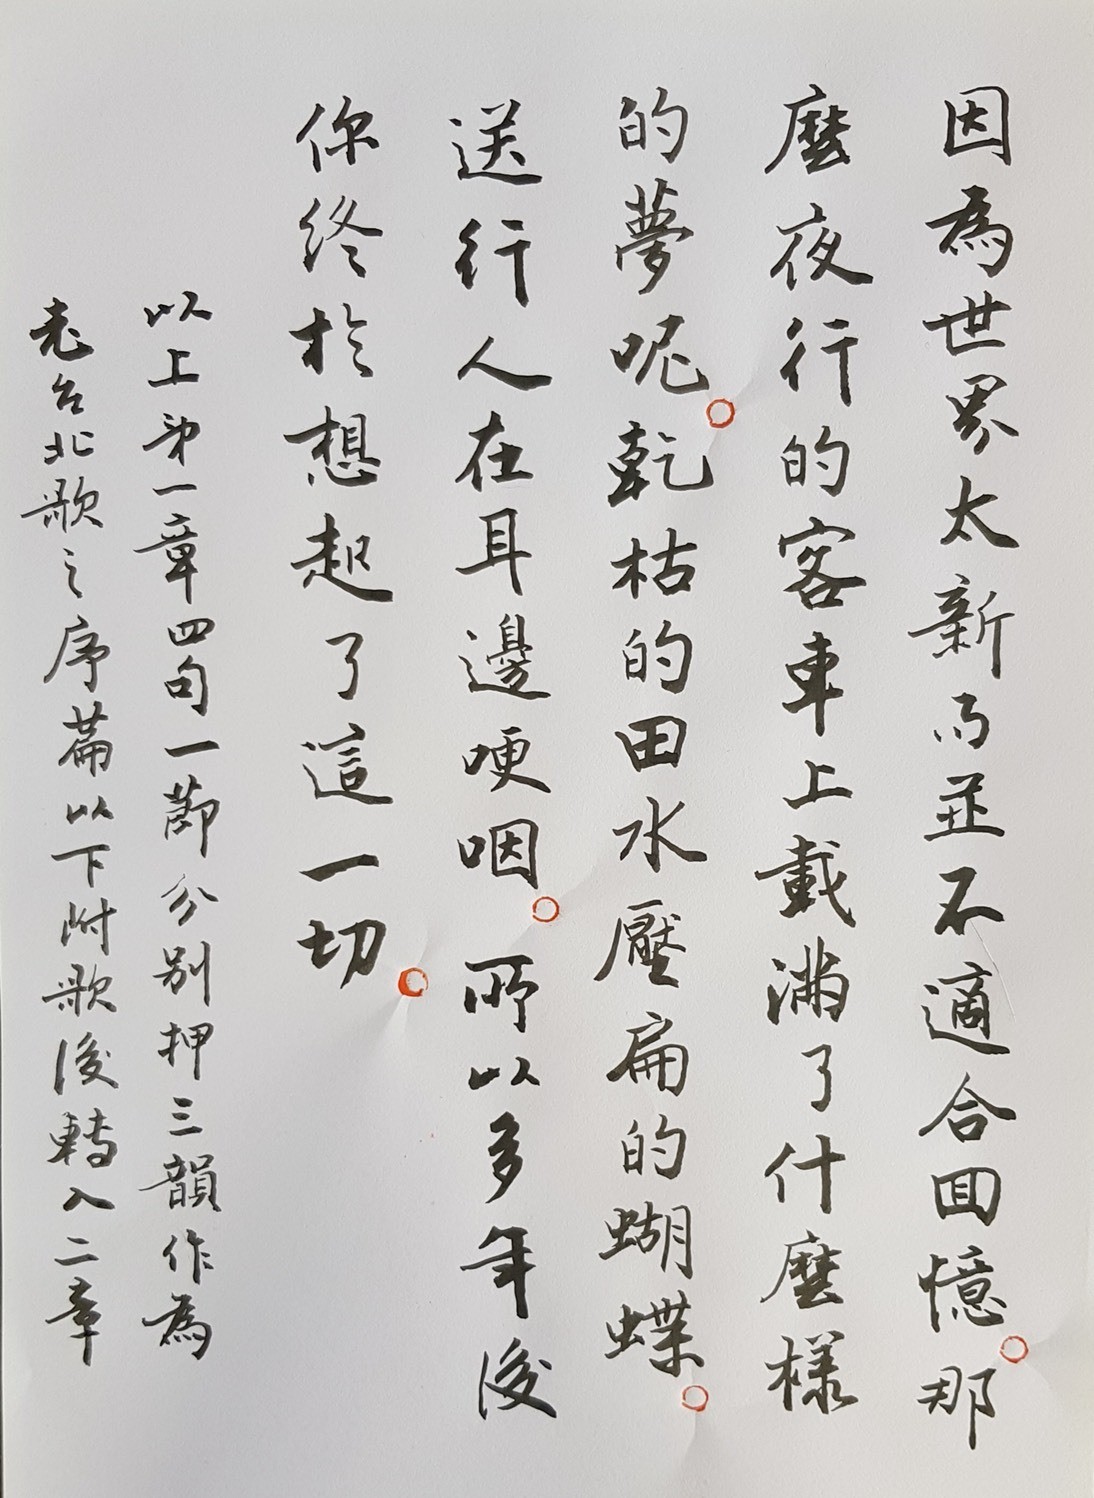 因為世界太新而並不適合回憶。那
麼夜行的客車上載滿了什麼樣
的夢呢。乾枯的田水壓扁的蝴蝶。
送行人在耳邊哽咽。所以多年後
你終於想起了這一切。
以上第一章四句一節分別押三韻作為
老台北歌之序篇以下附歌後轉入二章